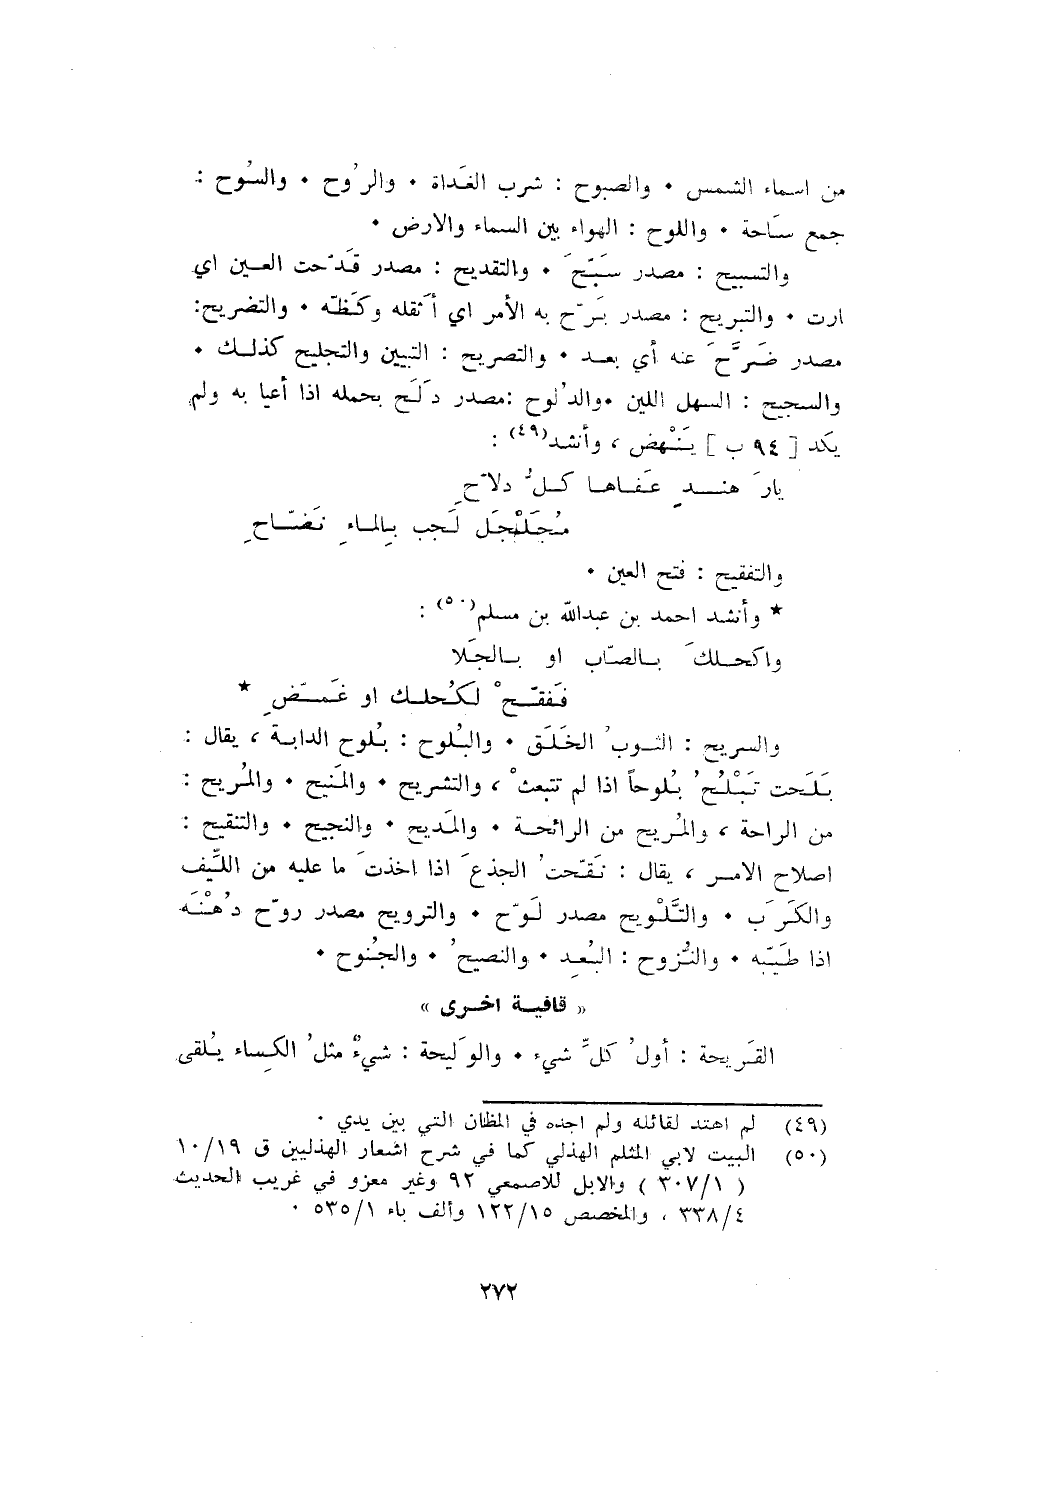 من اسماء الشمس • والصبوح : شرب الغَداة • والرُوح • والسُوح :
جمع سَاحة • واللوح : الهواء بين السماء والارض •
والتسبيح : مصدر سَبّحَ • والتقديح : مصدر قَدّحت العين اي
ارت • والتبريح : مصدر بَرّح به الأمر اي أثقله وكَظّه • والتضريح:
مصدر ضَرَّحَ عنه أي بعد • والتصريح : التبيين والتجليح كذلك •
والسجيح : السهل اللين •والدُلوح :مصدر دَلَح بحمله اذا أعيا به ولم
يكد [ ٩٤ ب ] يَنْهض ، وأنشد(٤٩) :
يارَ هندٍ عَفاها كلُّ دلاّحٍ
مُجَلْجَل لَجب بالماءِ نَضّاحِ
والتفقيح : فتح العين •
* وأنشد احمد بن عبدالله بن مسلم(٥٠) :
واكحلكَ بالصّاب او بالجَلا
فَفقّحْ لكُحلك او غَمّضِ *
والسريح : الثوبُ الخَلَق • والبُلوح : بُلوح الدابة ، يقال :
بَلَحت تَبْلُحُ بُلوحاً اذا لم تنبعثْ ، والتشريح • والمَنيح • والمُريح :
من الراحة ، والمُريح من الرائحة • والمَديح • والنجيح • والتنقيح :
اصلاح الامر ، يقال : نَقّحتُ الجذعَ اذا اخذتَ ما عليه من اللّيف
والكَرَب • والتَّلْويح مصدر لَوّح • والترويح مصدر روّح دُهْنَه
اذا طَيّبه • والنُّزوح : البُعد • والنصيحُ • والجُنوح •
« قافية اخرى »
القَريحة : أولُ كلِّ شيء • والوَليحة : شيءٌ مثلُ الكِساء يُلقى
(٤٩) لم اهتد لقائله ولم اجده في المظان التي بين يدي •
(٥٠) البيت لابي المثلم الهذلي كما في شرح اشعار الهذليين ق ١٠/١٩
( ٣٠٧/١ ) والابل للاصمعي ٩٢ وغير معزو في غريب الحديث
٣٣٨/٤ ، والمخصص ١٢٢/١٥ وألف باء ٥٣٥/١ •
٢٧٢